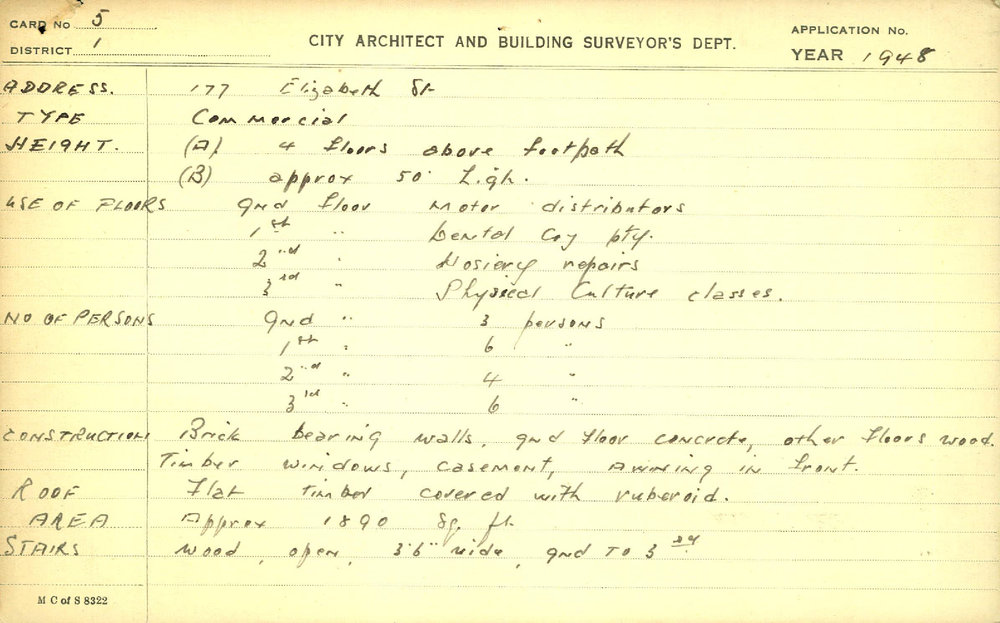 CARD No 5
DISTRICT 1
CITY ARCHITECT AND BUILDING SURVEYOR'S DEPT.
APPLICATION No.
YEAR 1948
ADDRESS. 177 Elizabeth St
TYPE Commercial
HEIGHT. (A) 4 floors above footpath
(B) approx 50' high.
USE OF FLOORS gnd floor Motor distributors
1st " Dental Coy pty.
2nd " Hosiery repairs
3rd " Physical Culture classes.
NO OF PERSONS gnd " 3 persons
1st " 6 "
2nd " 4 "
3rd " 6 "
CONSTRUCTION Brick bearing walls, gnd floor concrete, other floors wood.
Timber windows, casement, Awning in front.
ROOF Flat timber covered with ruberoid.
AREA Approx 1890 Sq. ft.
STAIRS Wood, open, 3'6" wide, gnd TO 3rd
M C of S 8322